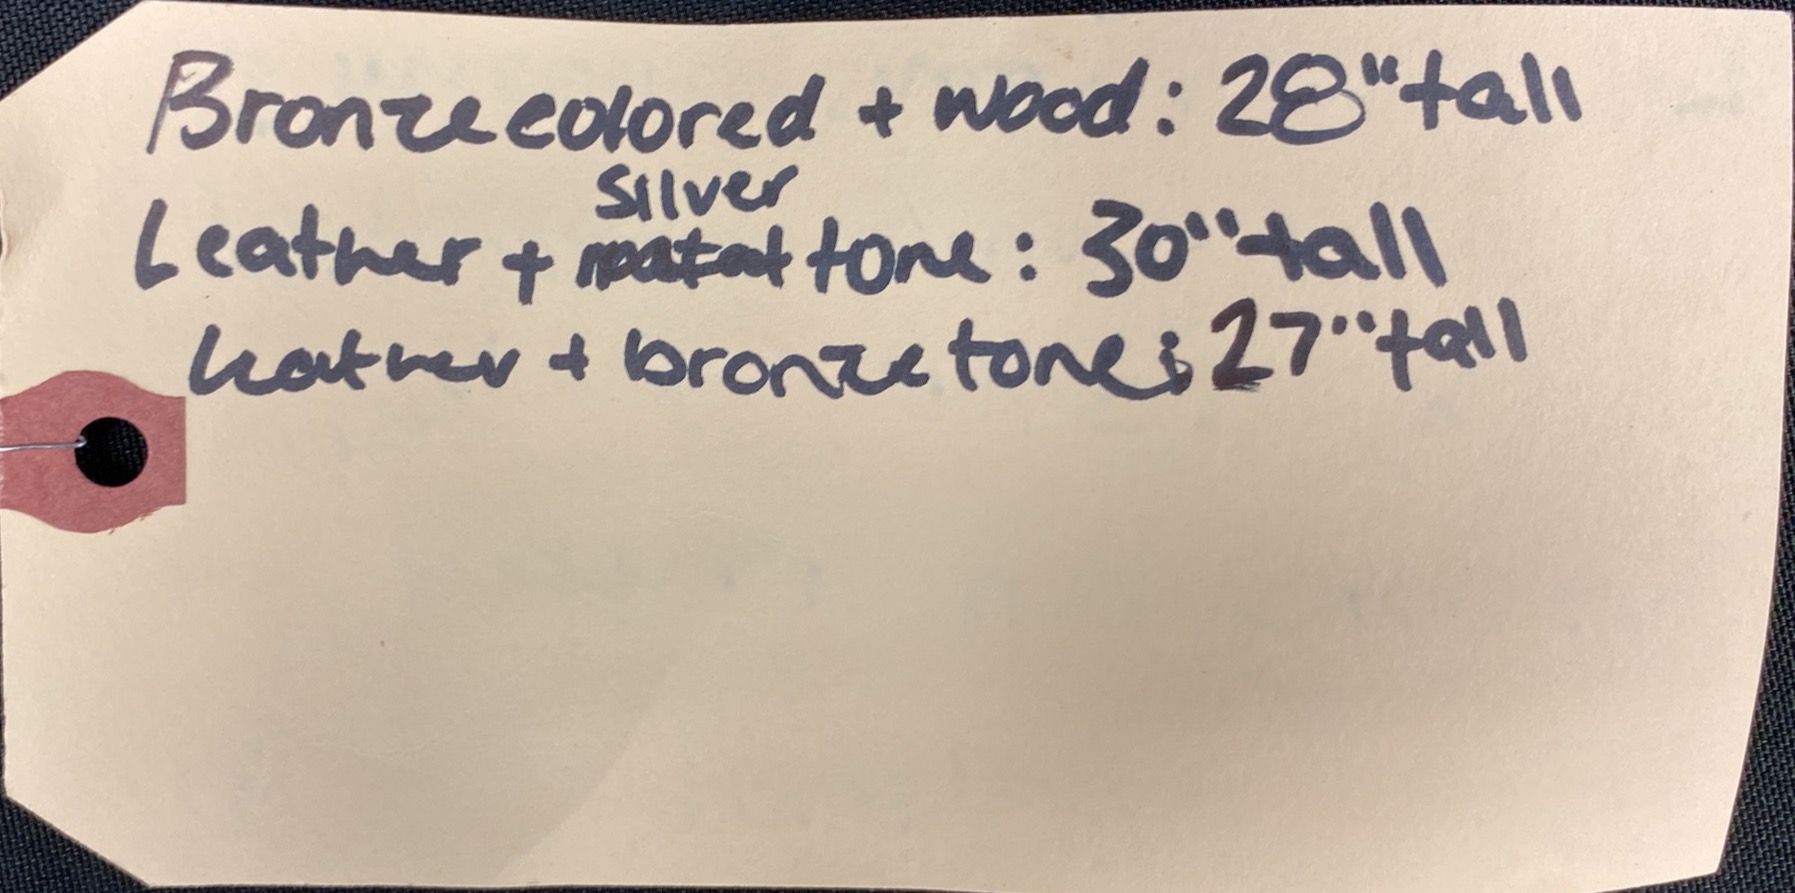 Bronze colored + wood: 28" tall
silver
Leather + metal tone: 30" tall
Leather + bronze tone: 27" tall